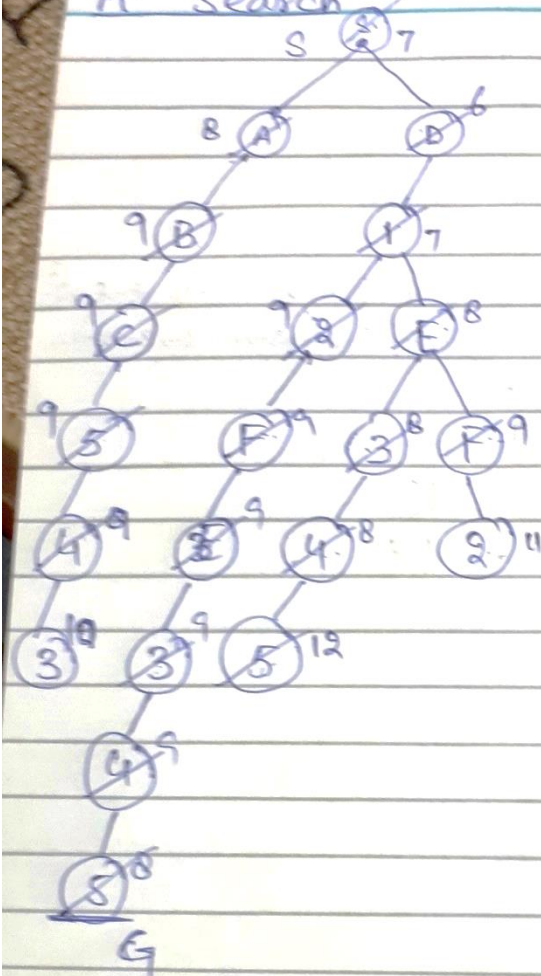 A* Search
S 7
8 A D 6
9 B 1 7
9 C 9 2 E 8
9 5 F 9 3 8 F 9
4 9 9 4 8 2 11
3 10 3 9 5 12
4 9
5 8
G